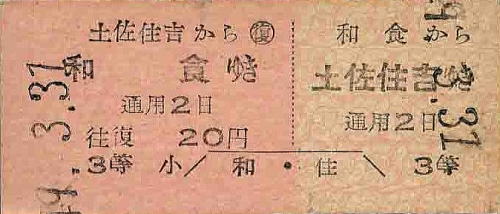 土佐住吉から ㊷
和食ゆき
通用2日
往復 20円
3等 小
和食から
土佐住吉ゆき
通用2日
和・住 3等
3.31
3.31